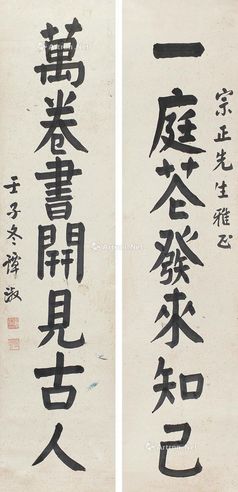 宗正先生雅正
一庭花發來知己
萬卷書開見古人
壬子冬譚淑